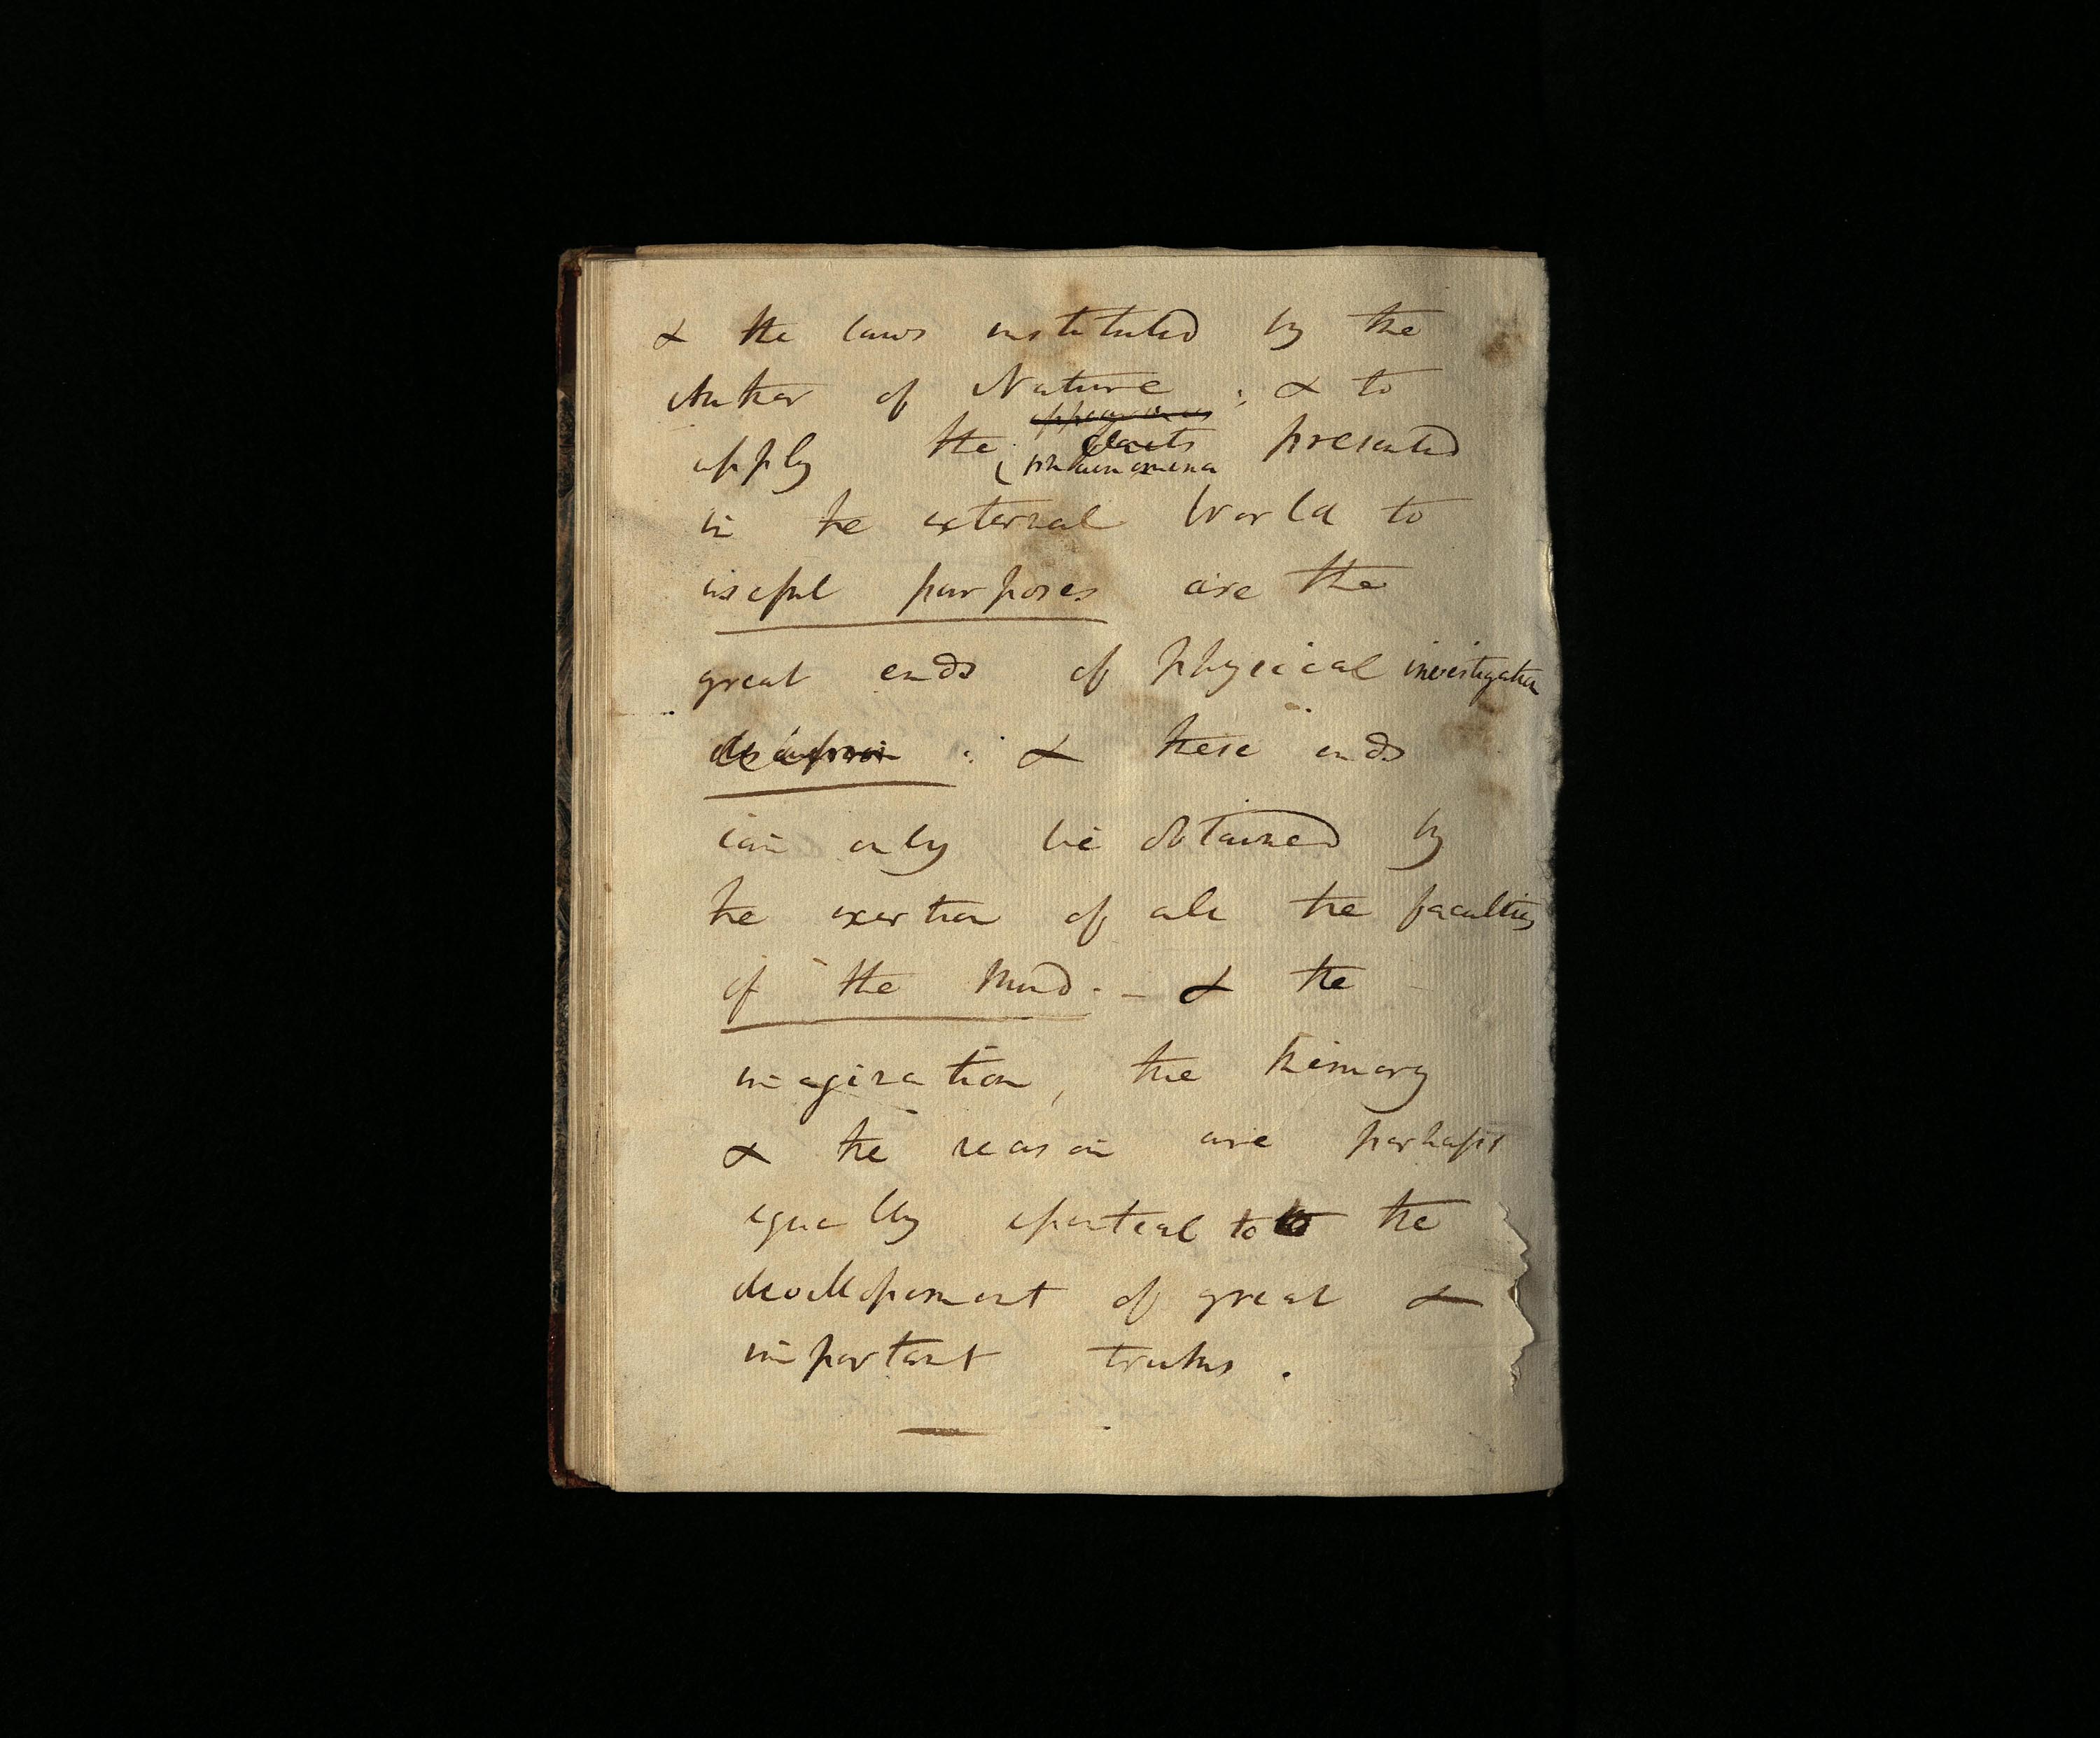 & the laws instituted by the
Author of Nature ; & to
appearances
apply the facts presented
phænomena
in the external World to
useful purposes are the
great ends of physical investigation
: & these ends
can only be obtained by
the exertion of all the faculties
of the Mind. - & the
imagination, the Memory
& the reason are perhaps
equally essential to to the
developement of great &
important truths .